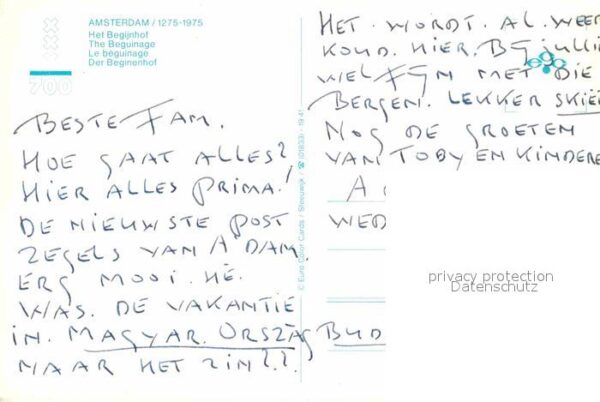 AMSTERDAM / 1275-1975
Het Begijnhof
The Beguinage
Le béguinage
Der Beginenhof
700
BESTE FAM.
HOE GAAT ALLES?
HIER ALLES PRIMA!
DE NIEUWSTE POST
ZEGELS VAN A'DAM.
ERG MOOI. HÈ.
WAS. DE VAKANTIE
IN. MAGYAR. ORSZÀG BUD
NAAR HET ZIN?.?.
© Euro Color Cards / Sleeuwijk / (01833) - 1941
HET. WORDT. AL. WEER
KOUD. HIER. BY jullie
WEL FYN MET DIE
BERGEN. LEKKER SKIË
NOG DE GROETEN
VAN TOBY EN KINDERE
A
WED
privacy protection
Datenschutz